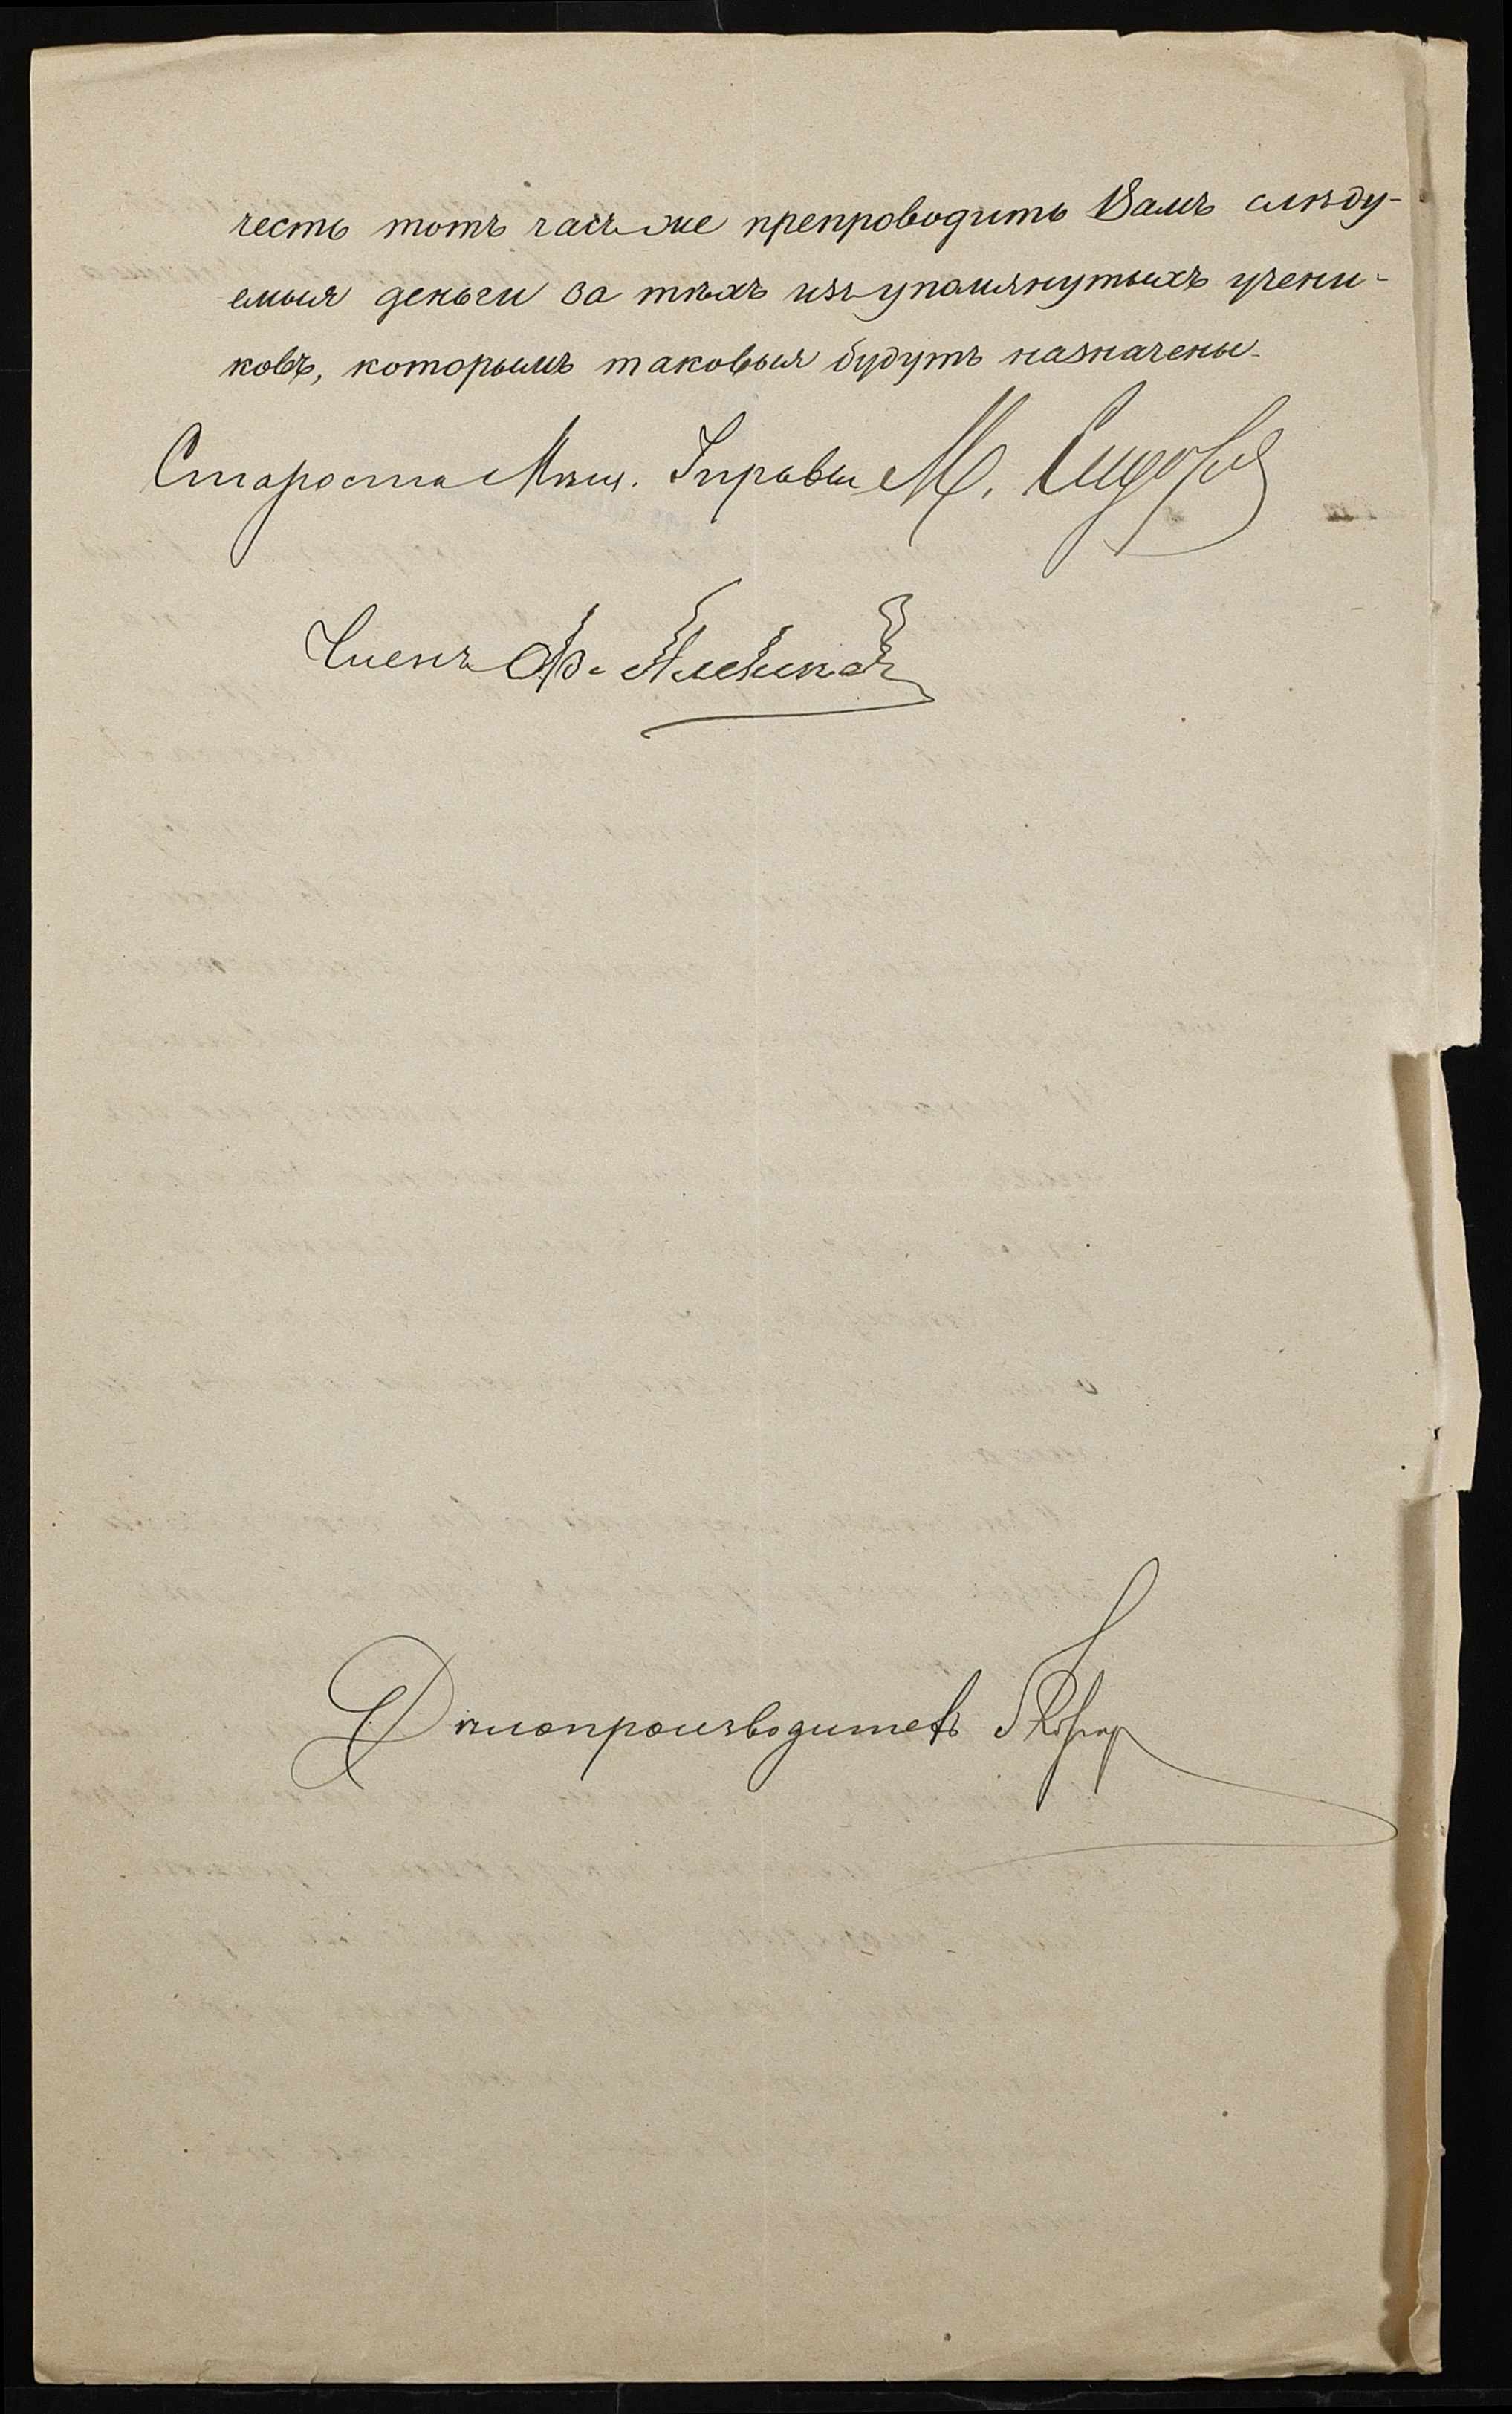 честь тотъ часъ же препроводить Вамъ слѣду-
емыя деньги за тѣхъ изъ упомянутыхъ учени-
ковъ, которымъ таковыя будутъ назначены.
Староста Мѣщ. Управы М. Сидоровъ
Членъ Ф.
Дѣлопроизводитель